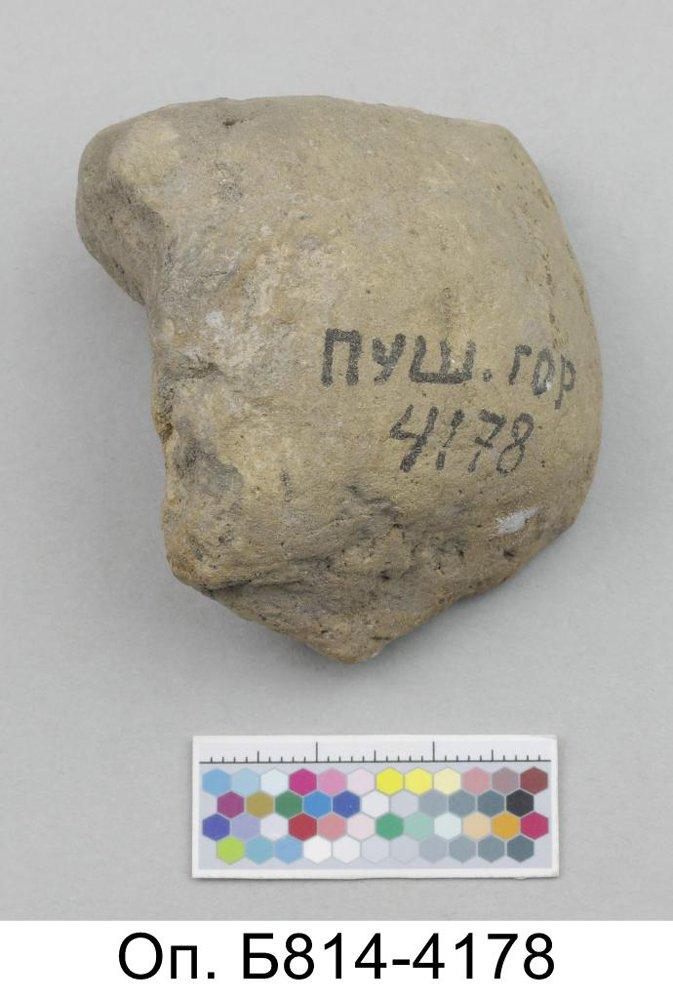 ПУШ. ГОР
4178
Оп. Б814-4178